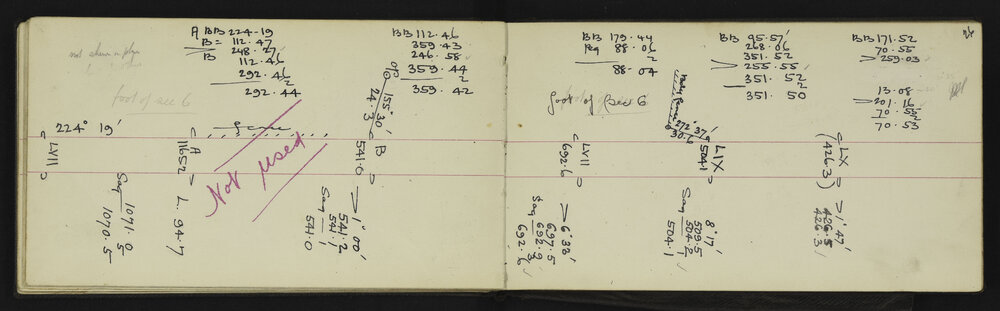 A BB 224-19
B = 112.47
248.27
B 112.46
292.46
2
292.44
foot of sec 6
224° 19'
LVII
Saq 1071.0
5
1070.5
11652
A
L. 94.7
fence
Not used
BB 112.46
359.43
246.58
359.44
2
359.42
OP
155° 30'
24.3
B
541.0
1° 00'
541.2
Saq 541.1
541.0
BB 179.44
88.06
2
88.04
foot of Sec 6
LVII
692.6
6° 33'
697.5
Saq 692.9
3
692.6
BB 95.57'
268.06
351.52
255.55
351.52
2
351.50
272° 37'
30.6
LIX
504.1
8° 17'
509.5
Saq 504.2
1
504.1
BB 171.52
70.55
259.03
13.08
201.16
70.55
2
70.53
LX
(426.3)
1° 47'
426.5
426.3